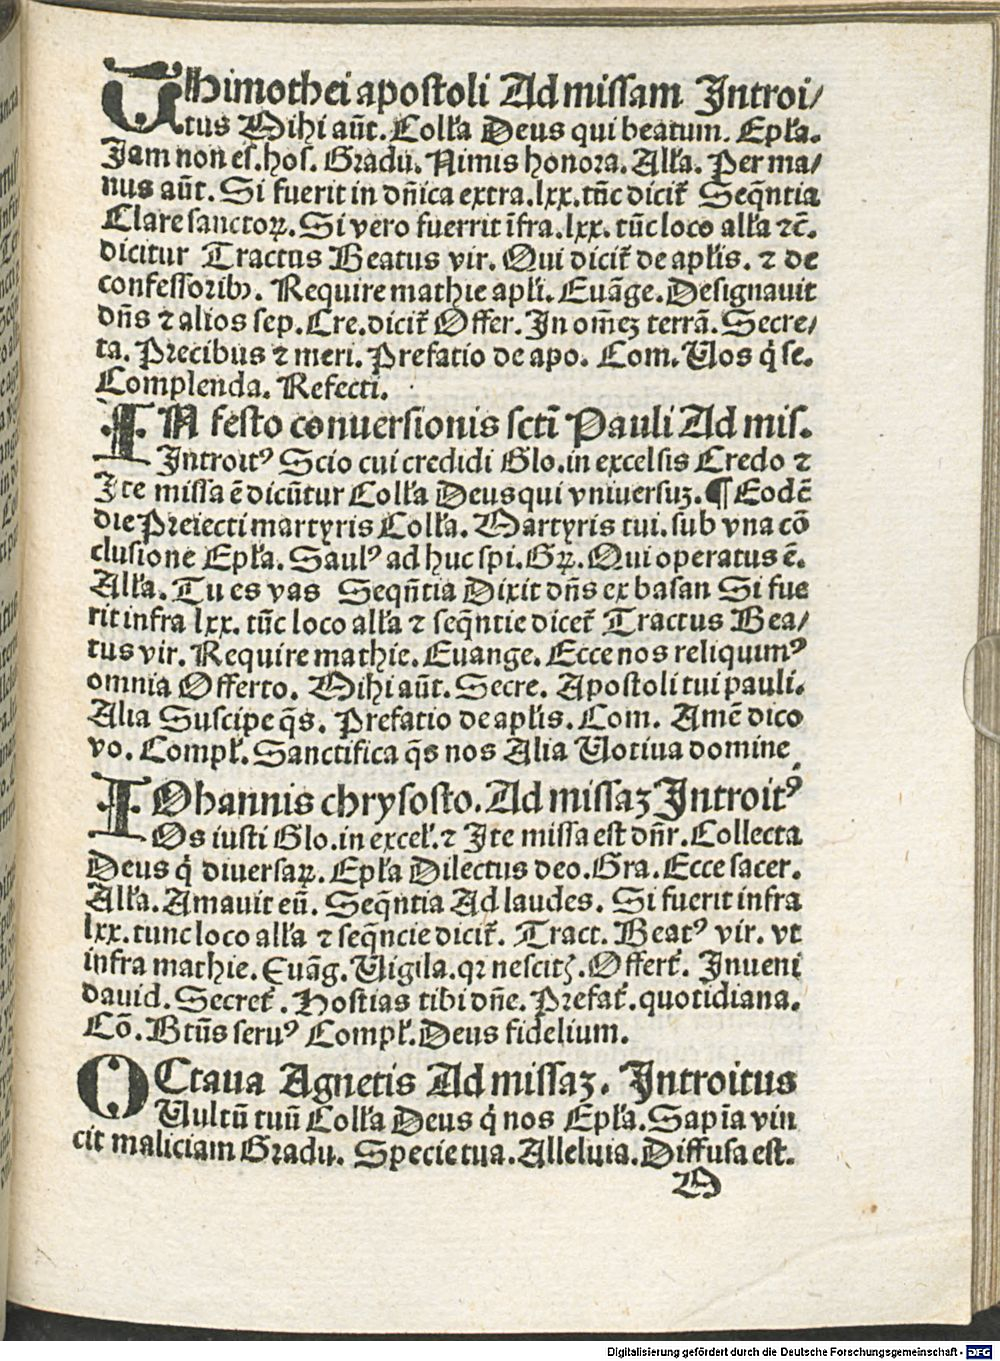 Thimothei apostoli Ad missam Introi/
tus Mihi aūt. Coll'a Deus qui beatum. Ep̄l'a.
Jam non es. hos. Gradū. Nimis honora. All'a. Per ma/
nus aūt. Si fuerit in dn̄ica extra. lxx. tūc dicit̄ Seqn̄tia
Clare sanctoꝝ. Si vero fuerrit īfra. lxx. tūc loco all'a ⁊c̄.
dicitur Tractus Beatus vir. Qui dicit̄ de apl'is. ⁊ de
confessoribꝰ. Require mathie apl'i. Euāge. Designauit
dn̄s ⁊ alios sep. Cre. dicit̄ Offer. In om̄eʒ terrā. Secre/
ta. Precibus ⁊ meri. Prefatio de apo. Com. Uos q̇ se.
Complenda. Refecti.
IN festo conuersionis sctī Pauli Ad mis.
Introitꝰ Scio cui credidi Glo. in excelsis Credo ⁊
Ite missa ē dicūtur Coll'a Deus qui vniuersuʒ. ¶ Eodē
die Preiecti martyris Coll'a. Martyris tui. sub vna cō
clusione Epl'a. Saulꝰ ad huc spi. Gꝝ. Qui operatus ē.
All'a. Tu es vas Seqn̄tia Dixit dn̄s ex basan Si fue
rit infra lxx. tūc loco all'a ⁊ seqn̄tie dicet̄ Tractus Bea/
tus vir. Require mathie. Euange. Ecce nos reliquimꝰ
omnia Offerto. Mihi aūt. Secre. Apostoli tui pauli.
Alia Suscipe q̄s. Prefatio de apl'is. Com. Amē dico
vo. Compl'. Sanctifica q̄s nos Alia Uotiua domine
IOhannis chrysosto. Ad missaʒ Introitꝰ
Os iusti Glo. in excel'. ⁊ Ite missa est dn̄r. Collecta
Deus q̇ diuersaꝝ. Epl'a Dilectus deo. Gra. Ecce sacer.
All'a. Amauit eū. Seqn̄tia Ad laudes. Si fuerit infra
lxx. tunc loco all'a ⁊ seqn̄cie dicit̄. Tract. Beatꝰ vir. vt
infra mathie. Euāg. Uigila. qꝛ nescitʒ. Offert̄. Inueni
dauid. Secret̄. Hostias tibi dn̄e. Prefat̄. quotidiana.
Cō. Btūs seruꝰ Compl'. Deus fidelium.
OCtaua Agnetis Ad missaʒ. Introitus
Uultū tuū Coll'a Deus q̇ nos Epl'a. Sapīa vin
cit maliciam Gradu. Specie tua. Alleluia. Diffusa est.
O
Digitalisierung gefördert durch die Deutsche Forschungsgemeinschaft - DFG